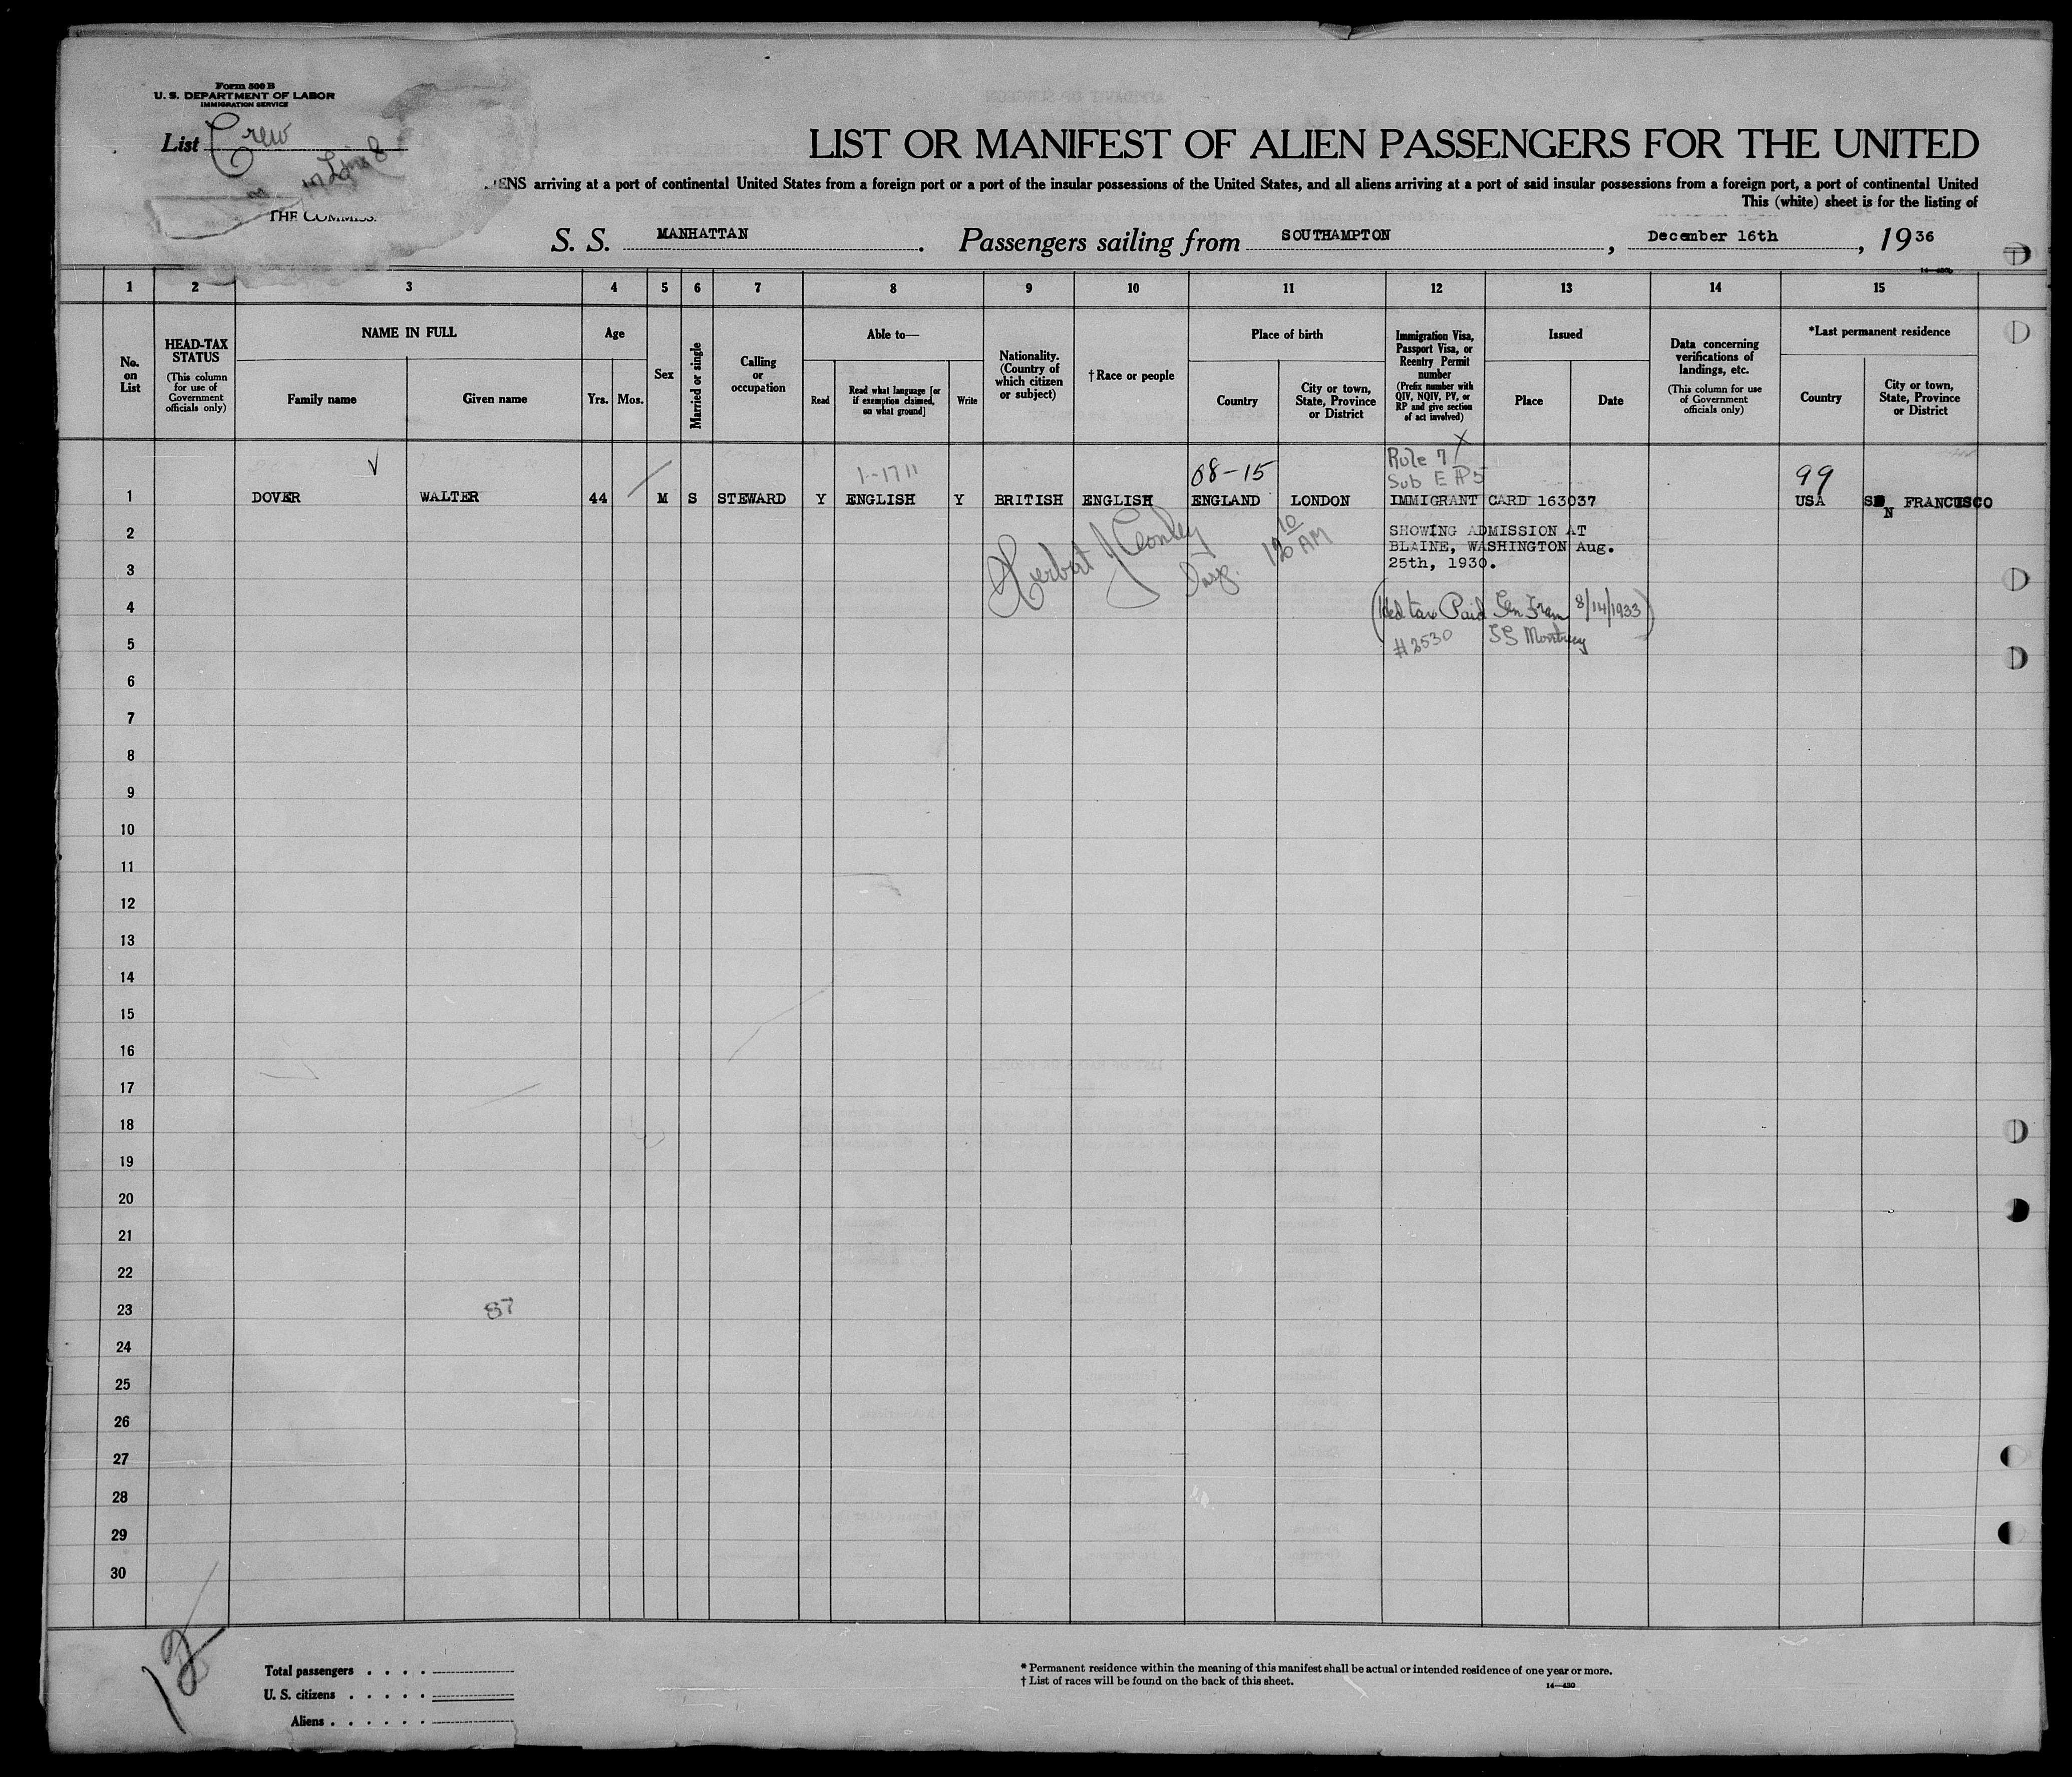 Form 500 B
U. S. DEPARTMENT OF LABOR
IMMIGRATION SERVICE
List Crew
in Line 8
THE COMMISS.
LIST OR MANIFEST OF ALIEN PASSENGERS FOR THE UNITED
IENS arriving at a port of continental United States from a foreign port or a port of the insular possessions of the United States, and all aliens arriving at a port of said insular possessions from a foreign port, a port of continental United
This (white) sheet is for the listing of
S. S. MANHATTAN . Passengers sailing from SOUTHAMPTON , December 16th , 1936
1 2 3 4 5 6 7 8 9 10 11 12 13 14 15
No. on List
HEAD-TAX STATUS
(This column for use of Government officials only)
NAME IN FULL
Family name
Given name
Age
Yrs. Mos.
Sex
Married or single
Calling or occupation
Able to—
Read
Read what language [or if exemption claimed, on what ground]
Write
Nationality. (Country of which citizen or subject)
† Race or people
Place of birth
Country
City or town, State, Province or District
Immigration Visa, Passport Visa, or Reentry Permit number
(Prefix number with QIV, NQIV, PV, or RP and give section of act involved)
Issued
Place
Date
Data concerning verifications of landings, etc.
(This column for use of Government officials only)
*Last permanent residence
Country
City or town, State, Province or District
1-1711
08-15
Rule 7
Sub E P5
99
1 DOVER WALTER 44 M S STEWARD Y ENGLISH Y BRITISH ENGLISH ENGLAND LONDON IMMIGRANT CARD 163037 USA SAN FRANCISCO
2 SHOWING ADMISSION AT
BLAINE, WASHINGTON Aug.
3 25th, 1930.
Herbert J Conley
Insp.
AM
4 (Hed tax Paid San Fran 8/14/1933)
5 #2530 SS Monterey
6
7
8
9
10
11
12
13
14
15
16
17
18
19
20
21
22
23 87
24
25
26
27
28
29
30
12
Total passengers . . . .
U. S. citizens . . . . .
Aliens . . . . . .
* Permanent residence within the meaning of this manifest shall be actual or intended residence of one year or more.
† List of races will be found on the back of this sheet.
14—430